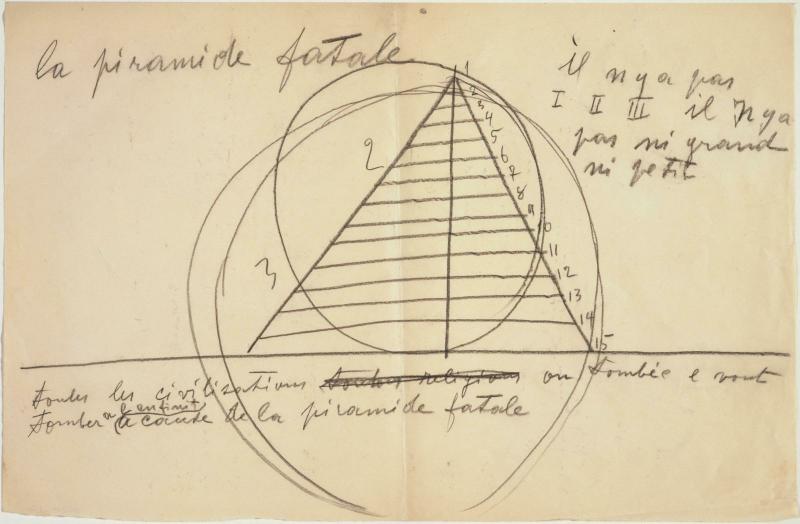 la piramide fatale
il n y a pas
I II III il n y a
pas ni grand
ni petit
1
2
3
4
5
6
7
8
9
10
11
12
13
14
15
2
3
toutes les civilisations toutes religions on tombée e vont
tomber a cause de la piramide fatale